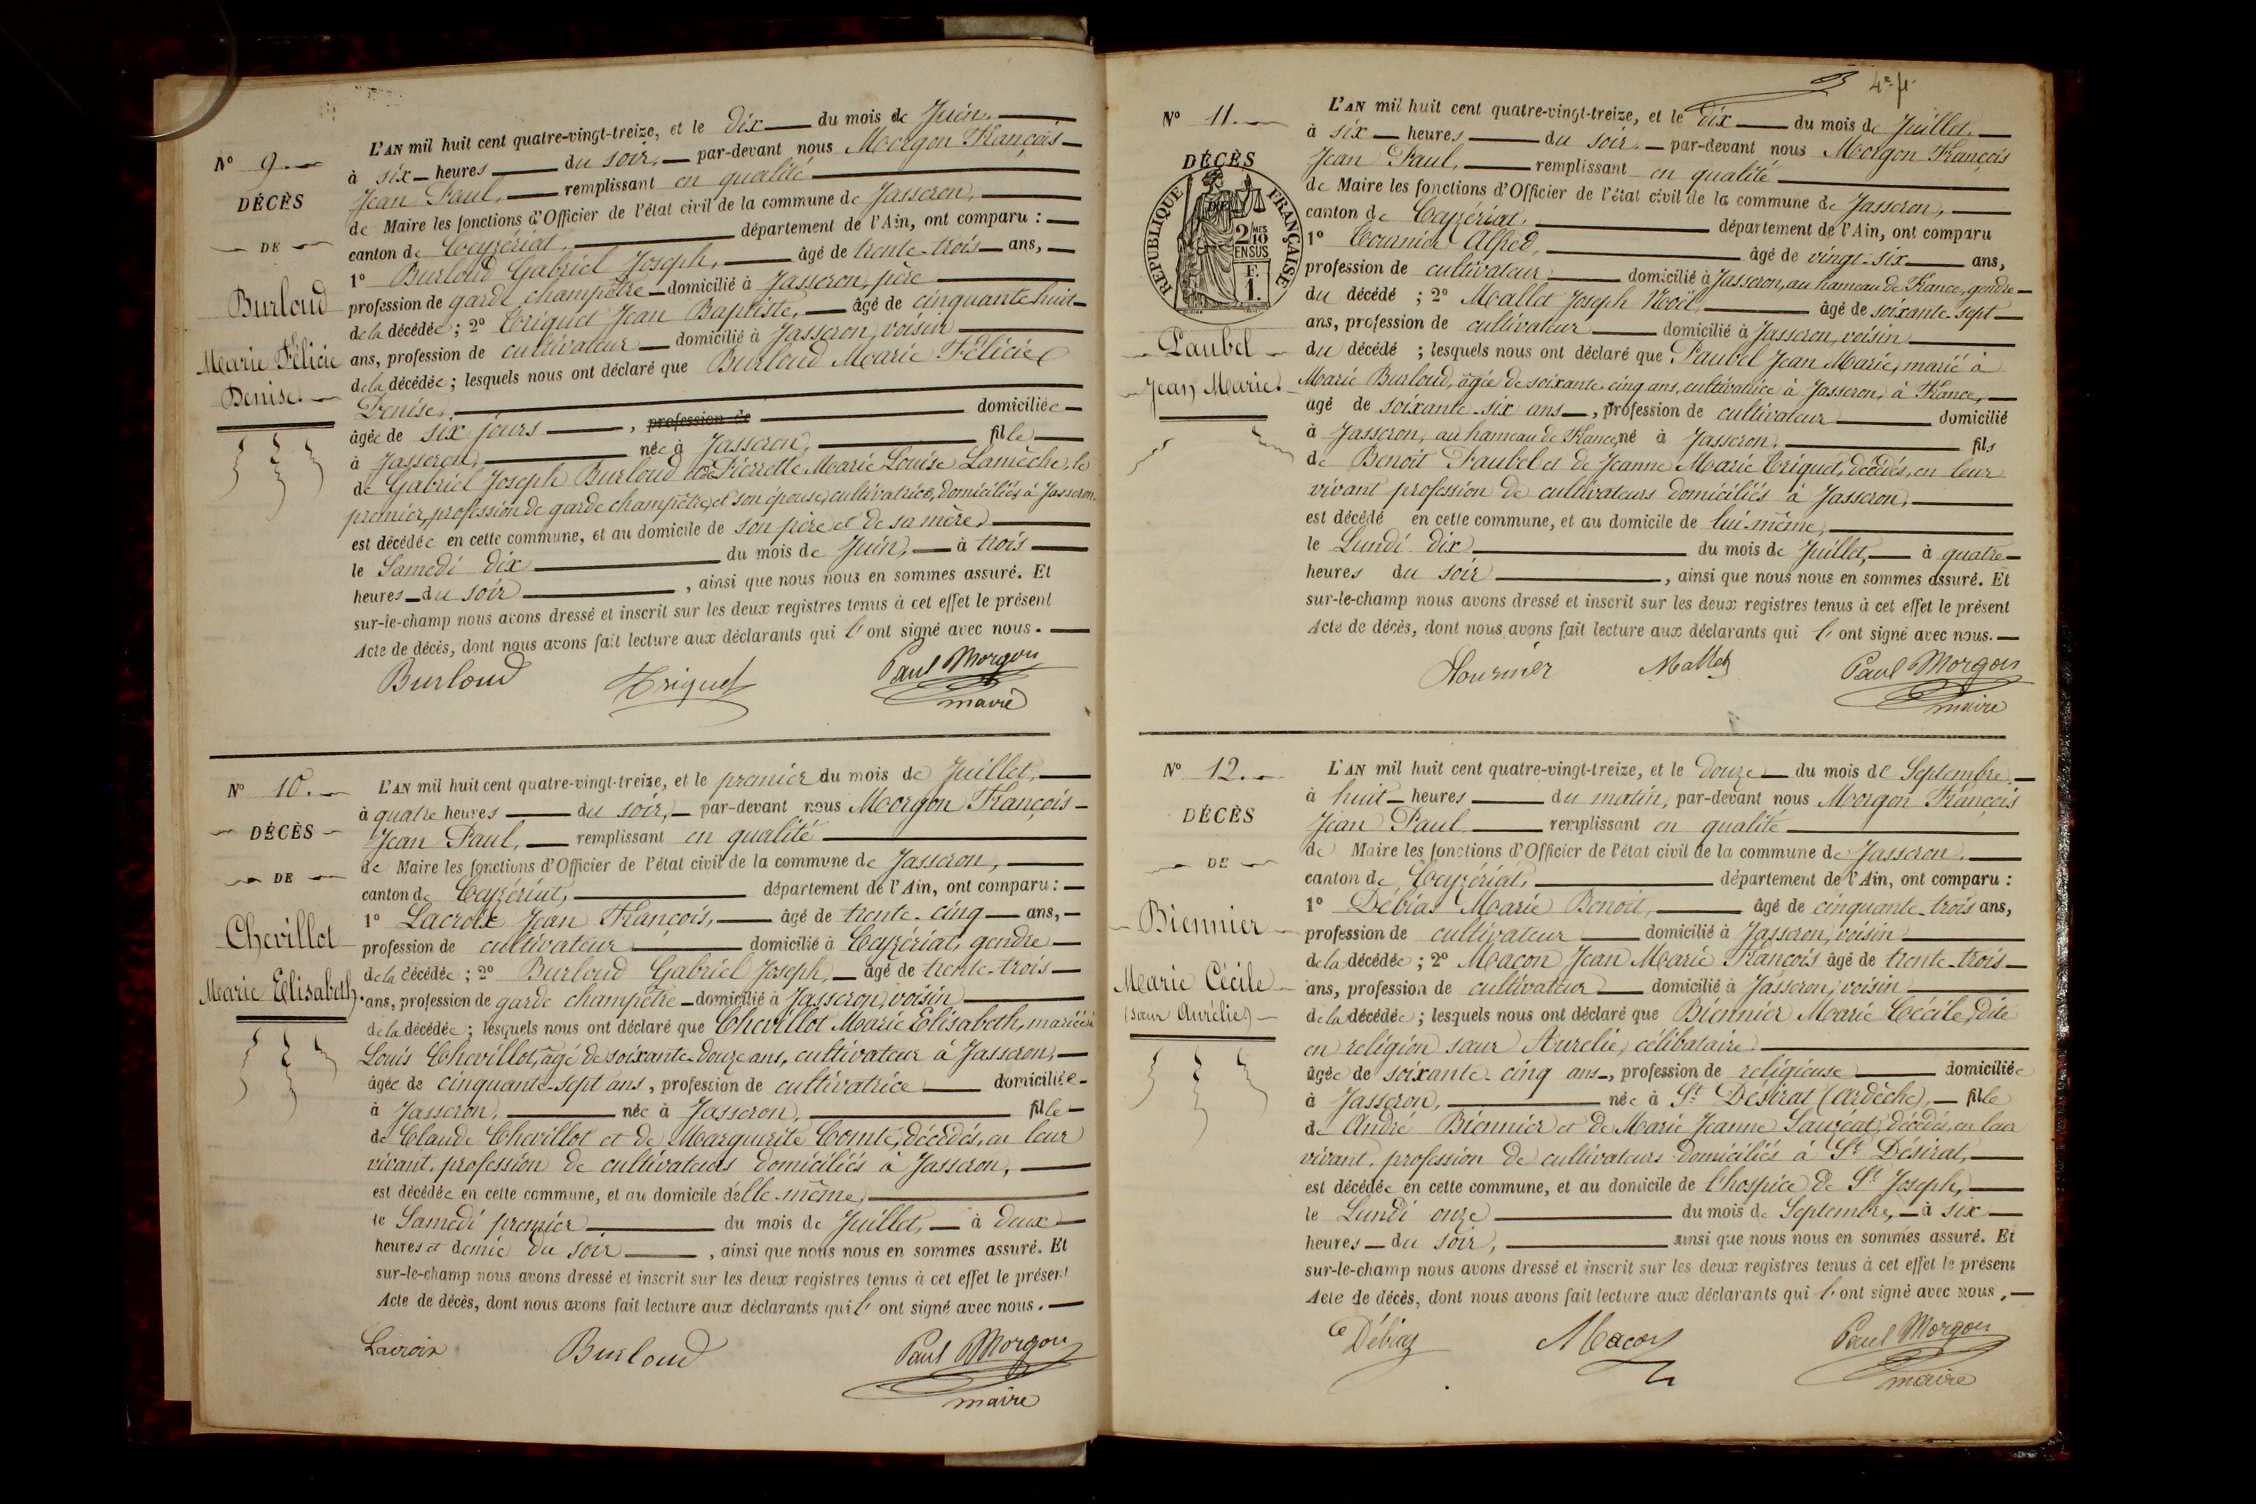 N° 9.
DÉCÈS
DE
Burloud
Marie Félicie
Denise.
L'AN mil huit cent quatre-vingt-treize, et le dix du mois de Juin.
à six heures du soir, par-devant nous Morgon François
Jean Paul, remplissant en qualité
de Maire les fonctions d'Officier de l'état civil de la commune de Jasseron,
canton de Ceyzériat, département de l'Ain, ont comparu :
1° Burloud Gabriel Joseph, âgé de trente-trois ans,
profession de garde champêtre domicilié à Jasseron, père
de la décédée ; 2° Triquet Jean Baptiste, âgé de cinquante huit
ans, profession de cultivateur domicilié à Jasseron, voisin
de la décédée ; lesquels nous ont déclaré que Burloud Marie Félicie
Denise,
âgée de six jours, profession de domiciliée
à Jasseron, née à Jasseron, fille
de Gabriel Joseph Burloud et de Pierrette Marie Louise Lamèche, le
premier, profession de garde champêtre, et son épouse, cultivatrice, domiciliés à Jasseron
est décédée en cette commune, et au domicile de son père et de sa mère,
le Samedi dix du mois de Juin, à trois
heures du soir, ainsi que nous nous en sommes assuré. Et
sur-le-champ nous avons dressé et inscrit sur les deux registres tenus à cet effet le présent
Acte de décès, dont nous avons fait lecture aux déclarants qui l'ont signé avec nous.
Burloud Triquet Paul Morgon
maire
N° 10.
DÉCÈS
DE
Chevillot
Marie Elisabeth.
L'AN mil huit cent quatre-vingt-treize, et le premier du mois de Juillet,
à quatre heures du soir, par-devant nous Morgon François
Jean Paul, remplissant en qualité
de Maire les fonctions d'Officier de l'état civil de la commune de Jasseron,
canton de Ceyzériat, département de l'Ain, ont comparu :
1° Lacroix Jean François, âgé de trente-cinq ans,
profession de cultivateur domicilié à Ceyzériat, gendre
de la décédée ; 2° Burloud Gabriel Joseph, âgé de trente-trois
ans, profession de garde champêtre domicilié à Jasseron, voisin
de la décédée ; lesquels nous ont déclaré que Chevillot Marie Elisabeth, mariée à
Louis Chevillot, âgé de soixante-douze ans, cultivateur à Jasseron,
âgée de cinquante-sept ans, profession de cultivatrice domiciliée
à Jasseron, née à Jasseron, fille
de Claude Chevillot et de Marguerite Comte, décédés, en leur
vivant, profession de cultivateurs domiciliés à Jasseron,
est décédée en cette commune, et au domicile d'elle-même,
le Samedi premier du mois de Juillet, à deux
heures et demie du soir, ainsi que nous nous en sommes assuré. Et
sur-le-champ nous avons dressé et inscrit sur les deux registres tenus à cet effet le présent
Acte de décès, dont nous avons fait lecture aux déclarants qui l'ont signé avec nous.
Lacroix Burloud Paul Morgon
maire
4e f
N° 11.
DÉCÈS
DE
RÉPUBLIQUE FRANÇAISE
2 MES
10
EN SUS
F.
1.
Paubel
Jean Marie.
L'AN mil huit cent quatre-vingt-treize, et le dix du mois de Juillet,
à six heures du soir, par-devant nous Morgon François
Jean Paul, remplissant en qualité
de Maire les fonctions d'Officier de l'état civil de la commune de Jasseron,
canton de Ceyzériat, département de l'Ain, ont comparu
1° Tournier Alfred, âgé de vingt-six ans,
profession de cultivateur domicilié à Jasseron, au hameau de France, gendre
du décédé ; 2° Mallet Joseph Noël, âgé de soixante-sept
ans, profession de cultivateur domicilié à Jasseron, voisin
du décédé ; lesquels nous ont déclaré que Paubel Jean Marie, marié à
Marie Burloud, âgée de soixante-cinq ans, cultivatrice à Jasseron, à France,
âgé de soixante-six ans, profession de cultivateur domicilié
à Jasseron, au hameau de France, né à Jasseron, fils
de Benoit Paubel et de Jeanne Marie Triquet, décédés, en leur
vivant profession de cultivateurs domiciliés à Jasseron,
est décédé en cette commune, et au domicile de lui-même,
le Lundi dix du mois de Juillet, à quatre
heures du soir, ainsi que nous nous en sommes assuré. Et
sur-le-champ nous avons dressé et inscrit sur les deux registres tenus à cet effet le présent
Acte de décès, dont nous avons fait lecture aux déclarants qui l'ont signé avec nous.
Tournier Mallet Paul Morgon
maire
N° 12.
DÉCÈS
DE
Biennier
Marie Cécile
(sœur Aurélie)
L'AN mil huit cent quatre-vingt-treize, et le douze du mois de Septembre,
à huit heures du matin, par-devant nous Morgon François
Jean Paul remplissant en qualité
de Maire les fonctions d'Officier de l'état civil de la commune de Jasseron,
canton de Ceyzériat, département de l'Ain, ont comparu :
1° Débias Marie Benoit, âgé de cinquante-trois ans,
profession de cultivateur domicilié à Jasseron, voisin
de la décédée ; 2° Macon Jean Marie François âgé de trente-trois
ans, profession de cultivateur domicilié à Jasseron, voisin
de la décédée ; lesquels nous ont déclaré que Biennier Marie Cécile, dite
en religion sœur Aurélie, célibataire
âgée de soixante-cinq ans, profession de religieuse domiciliée
à Jasseron, née à St Désirat (Ardèche), fille
de André Biennier et de Marie Jeanne Sauzéat, décédés, en leur
vivant, profession de cultivateurs domiciliés à St Désirat,
est décédée en cette commune, et au domicile de l'hospice de St Joseph,
le Lundi onze du mois de Septembre, à six
heures du soir, ainsi que nous nous en sommes assuré. Et
sur-le-champ nous avons dressé et inscrit sur les deux registres tenus à cet effet le présent
Acte de décès, dont nous avons fait lecture aux déclarants qui l'ont signé avec nous,
Débias Macon Paul Morgon
maire